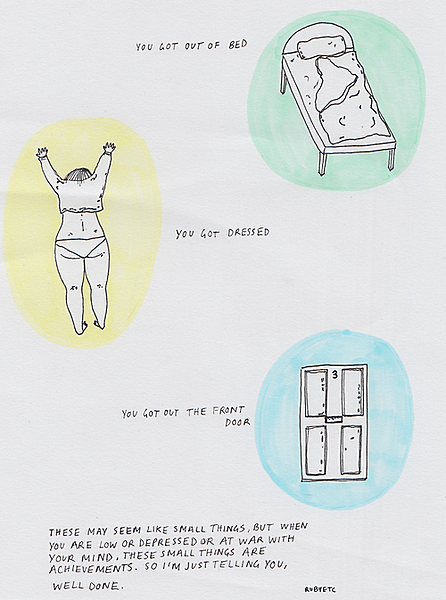 YOU GOT OUT OF BED
YOU GOT DRESSED
3
YOU GOT OUT THE FRONT
DOOR
THESE MAY SEEM LIKE SMALL THINGS, BUT WHEN
YOU ARE LOW OR DEPRESSED OR AT WAR WITH
YOUR MIND, THESE SMALL THINGS ARE
ACHIEVEMENTS. SO I'M JUST TELLING YOU,
WELL DONE.
RUBYETC